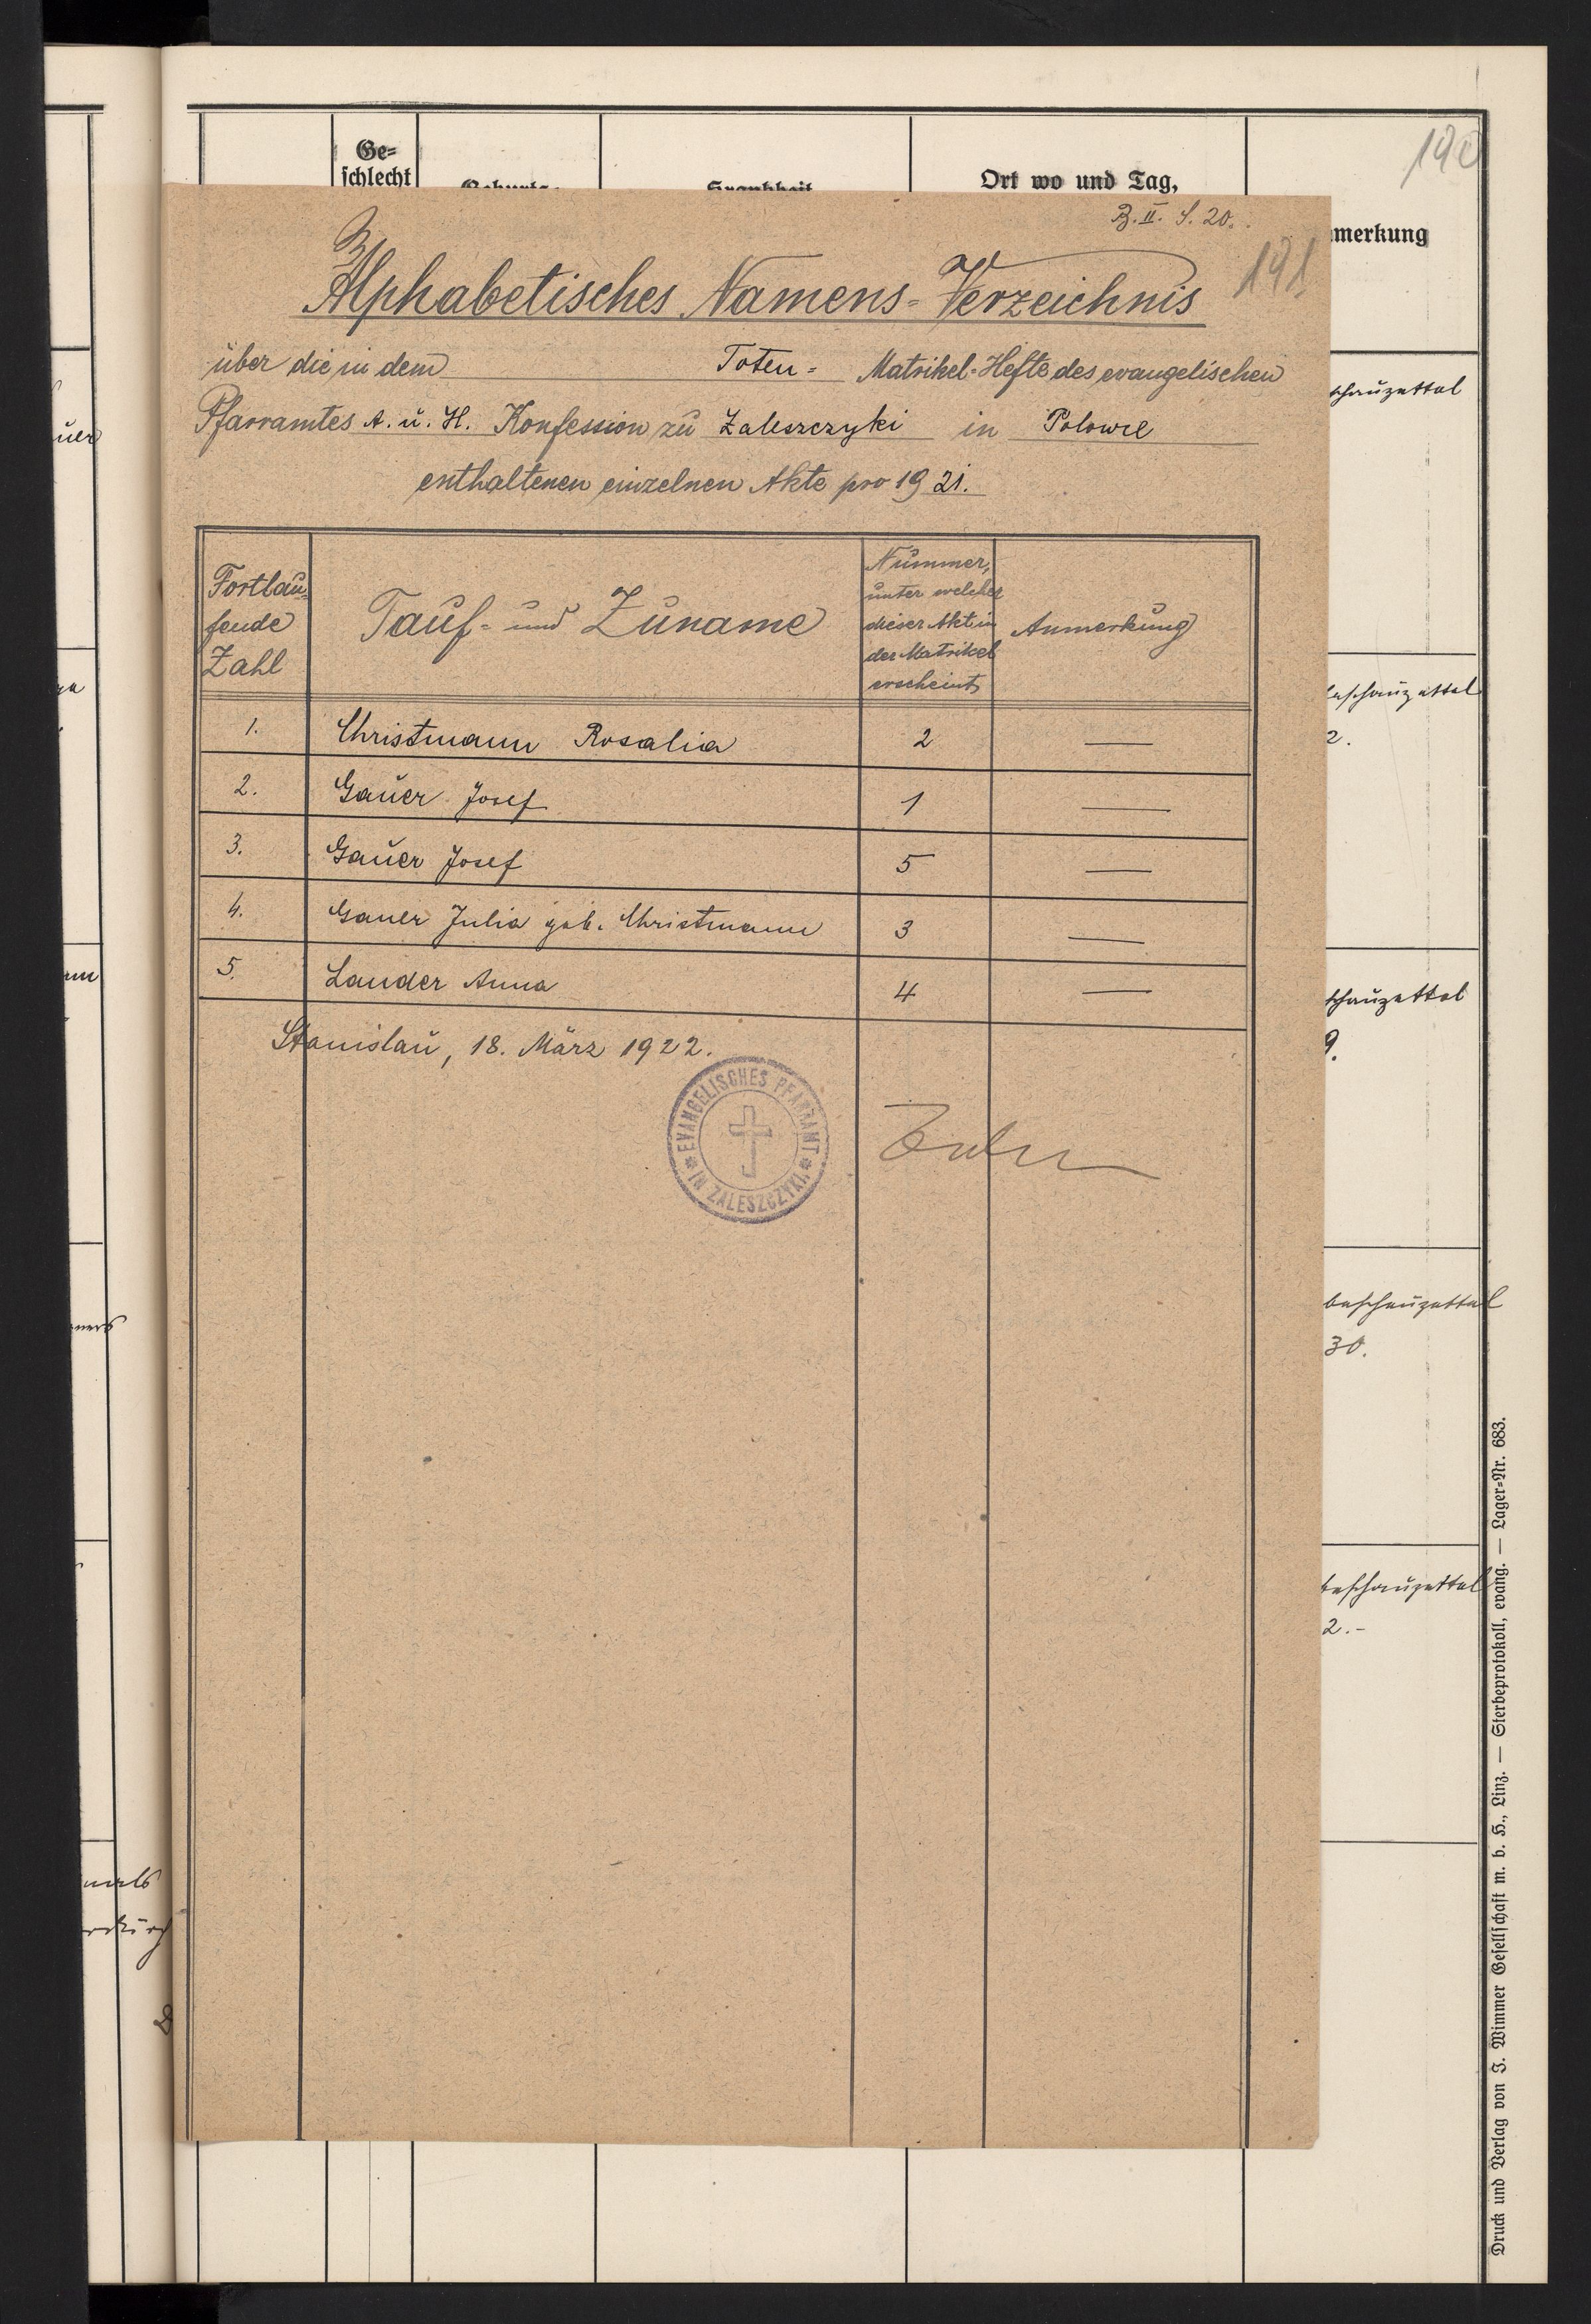 190
Ge=
schlecht
Ort wo und Tag,
merkung
B. II. S. 20.
191
Alphabetisches Namens=Verzeichnis
über die in dem Toten= Matrikel-Hefte des evangelischen
Pfarramtes A. u. H. Konfession zu Zaleszczyki in Polowce
enthaltenen einzelnen Akte pro 1921.
Fortlau=
fende
Zahl
Tauf= und Zuname
Nummer,
unter welcher
dieser Akt in
der Matrikel
erscheint
Anmerkung
1. Christmann Rosalia 2 —
2. Gauer Josef 1 —
3. Gauer Josef 5 —
4. Gauer Julia geb. Christmann 3 —
5. Lander Anna 4 —
Stanislau, 18. März 1922.
EVANGELISCHES PFARRAMT
IN ZALESZCZYKI
schauzettel
beschauzettel
2.
schauzettel
9.
beschauzettel
30.
beschauzettel
2.-
Druck und Verlag von J. Wimmer Gesellschaft m. b. H., Linz. — Sterbeprotokoll, evang. — Lager=Nr. 683.